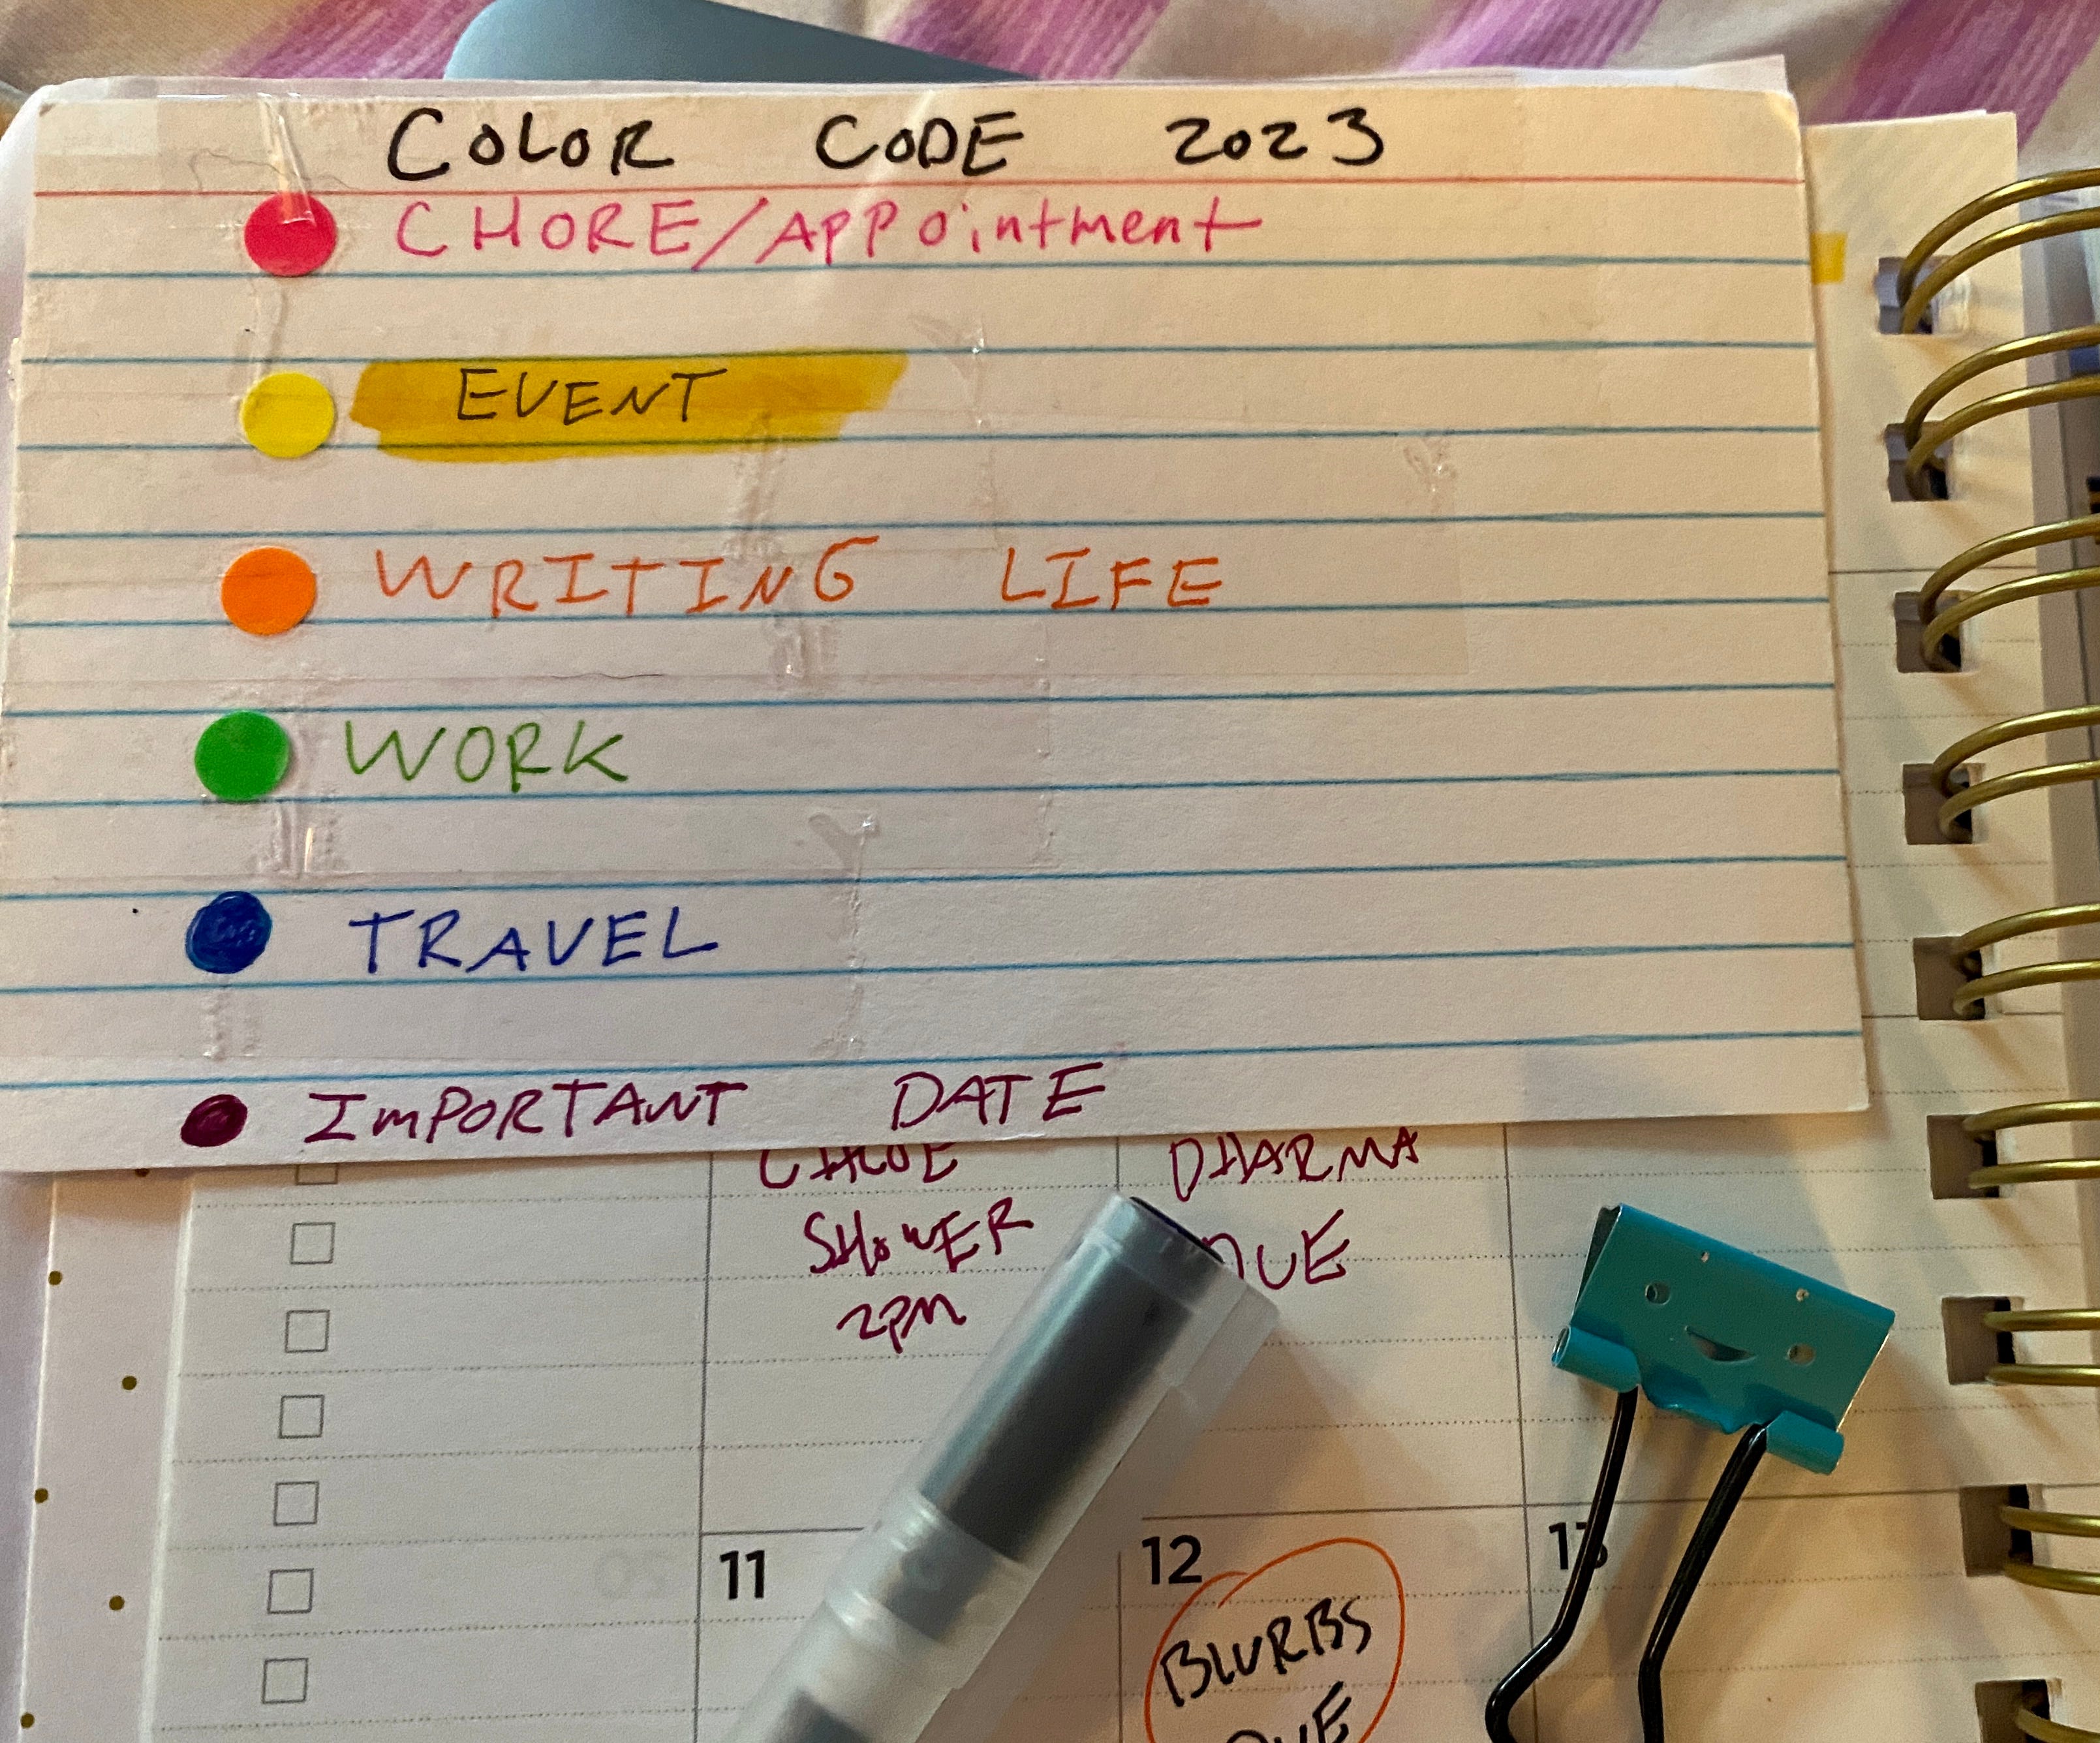 COLOR CODE 2023
CHORE/APPointment
EVENT
WRITING LIFE
WORK
TRAVEL
IMPORTANT DATE
CHLOE
SHOWER
2PM
DHARMA
DUE
11
12
13
BLURBS
DUE